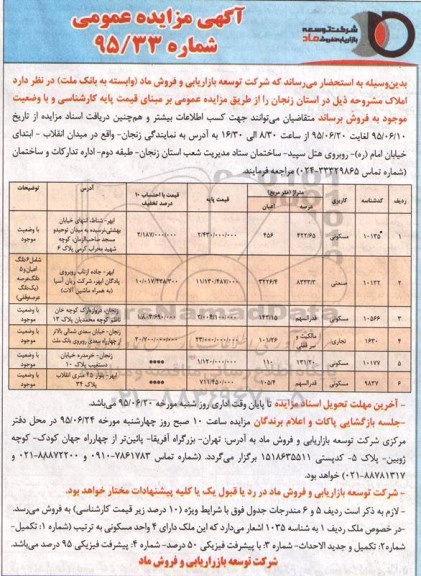 شرکت توسعه
بازاریابی و فروش ماد
آگهی مزایده عمومی
شماره ۹۵/۳۳
بدین‌وسیله به استحضار می‌رساند که شرکت توسعه بازاریابی و فروش ماد (وابسته به بانک ملت) در نظر دارد
املاک مشروحه ذیل در استان زنجان را از طریق مزایده عمومی بر مبنای قیمت پایه کارشناسی و با وضعیت
موجود به فروش برساند متقاضیان می‌توانند جهت کسب اطلاعات بیشتر و هم‌چنین دریافت اسناد مزایده از تاریخ
۹۵/۰۶/۱۰ لغایت ۹۵/۰۶/۲۰ از ساعت ۸/۳۰ الی ۱۶/۳۰ به آدرس به نمایندگی زنجان- واقع در میدان انقلاب - ابتدای
خیابان امام (ره)- روبروی هتل سپید- ساختمان ستاد مدیریت شعب استان زنجان- طبقه دوم- اداره تدارکات و ساختمان
(شماره تماس ۳۳۳۲۹۸۶۵-۰۲۴) مراجعه فرمایند.
ردیف کدشناسه کاربری متراژ (متر مربع) عرصه اعیان قیمت پایه قیمت با احتساب ۱۰ درصد تخفیف آدرس توضیحات
۱ ۱۰۱۳۵ مسکونی ۴۲۲/۶۵ ۴۵۶ ۲/۴۳۰/۰۰۰/۰۰۰ ۲/۱۸۷/۰۰۰/۰۰۰ ابهر- شناط، انتهای خیابان بهشتی، نرسیده به میدان توحید، مسجد صاحب‌الزمان، کوچه شهید محراب کرمی پلاک ۶ با وضعیت موجود
۲ ۱۰۱۳۲ صنعتی ۸۳۳۳/۳ ۳۲۲۶/۴ ۱۱/۱۳۰/۴۸۷/۰۰۰ ۱۰/۰۱۷/۴۳۸/۳۰۰ ابهر- جاده ازناب روبروی پادگان ابهر، شرکت زیان آسیا (به همراه ماشین آلات)
۳ ۱۰۵۶۶ مسکونی قدرالسهم ۱۴۳/۱۵ ۲/۰۰۴/۱۰۰/۰۰۰ ۱/۸۰۳/۶۹۰/۰۰۰ با وضعیت موجود
۴ ۱۶۳۰ تجاری مالکیت و سرقفلی ۱۰۱/۳۶ ۲۳/۰۰۰/۰۰۰/۰۰۰ ۲۰/۷۰۰/۰۰۰/۰۰۰ زنجان- خیابان سعدی شمالی بالاتر از چهارراه سعدی روبروی بانک ملت با وضعیت موجود
۵ ۱۰۱۷۷ مسکونی ۱۳۱/۲۰ ۱۱۰ ۱/۱۴۰/۰۰۰/۰۰۰ **** زنجان- خرمدره خیابان دستغیب پلاک ۱۰ با وضعیت موجود
۶ ۹۸۳۷ مسکونی قدرالسهم ۷۱۱/۴۵۰/۰۰۰ **** ابهر- بلوار ۴۵ متری انقلاب پلاک ۴۴ با وضعیت موجود
- آخرین مهلت تحویل اسناد مزایده تا پایان وقت اداری روز شنبه مورخه ۹۵/۰۶/۲۰ می‌باشد.
-جلسه بازگشایی پاکات و اعلام برندگان مزایده ساعت ۱۰ صبح روز چهارشنبه مورخه ۹۵/۰۶/۲۴ در محل دفتر
مرکزی شرکت توسعه بازاریابی و فروش ماد به آدرس: تهران- بزرگراه آفریقا- پائین‌تر از چهارراه جهان کودک- کوچه
ژوبین- پلاک ۵- کدپستی ۱۵۱۸۶۳۵۵۱۱ برگزار می‌گردد. (شماره تماس ۷۸۶۱۷۸۳-۰۹۱۰ و ۸۸۸۷۲۲۰۰-۰۲۱ و
۸۸۷۸۱۳۱۷-۰۲۱) خواهد بود.
- شرکت توسعه بازاریابی و فروش ماد در رد یا قبول یک یا کلیه پیشنهادات مختار خواهد بود.
- لازم به ذکر است ردیف ۵ و ۶ مندرجات جدول فوق با شرایط ویژه (۱۰ درصد زیر قیمت کارشناسی) به فروش می‌رسد.
-در خصوص ملک ردیف ۱ به شناسه ۱۰۳۵ اشعار می‌دارد که این ملک دارای ۴ واحد مسکونی به ترتیب (شماره ۱: تکمیل-
شماره۲: تکمیل و جدید الاحداث- شماره ۳: با پیشرفت فیزیکی ۵۰ درصد- شماره ۴: پیشرفت فیزیکی ۹۵ درصد می‌باشد.
شرکت توسعه بازاریابی و فروش ماد